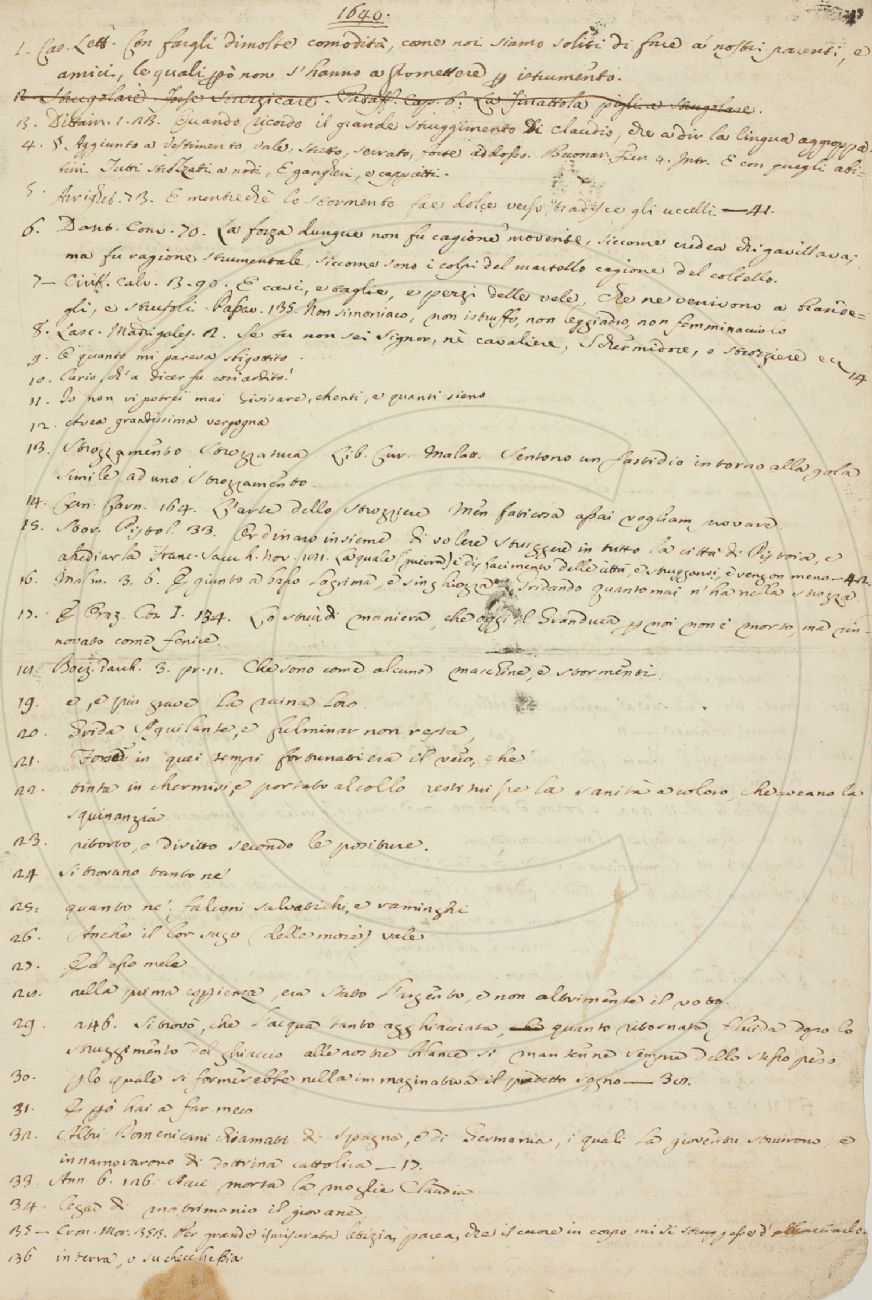 1640.
1. Cas. Lett. Con fargli dimolte comodità, come noi siamo soliti di fare a' nostri parenti, e
amici, le quali pò non s'hanno a promettere p istrumento.
2 Cap. 6. La
3. Dittam. 1. 23. Quando ricordo il grande struggimento Di Claudio, che a dir la lingua aggroppa
4. §. Aggiunto a vestimento, vale stretto, serrato, forte addosso. Buonar. Fier. 4. Intr. E con quegli abi=
tini Tutti stringati a nodi, E gangheri, e cappietti.
5. Arrighet. 73. E mentrechè lo stormento fae dolce verso, tradisce gli uccelli — 41.
6. Dant. Conv. 70. La forza dunque non fu cagione movente, siccome credea chi gavillava;
ma fu ragione strumentale, siccome sono i colpi del martello cagione del coltello.
7— Ciriff. Calv. 3. 90. E cavi, e taglie, e pezzi delle vele, Che ne venivono a brande=
gli, e strufoli. Passav. 135. Non simoniaco, non istruffo, non leggiadro, non femminacciolo
8. Lasc. Madrigales. 2. Se tu non sei signor, nè cavaliere, Schermidore, o strozziere ec. 14
9. E quanto mi pareva sbigottito . . .
10. Curio, ch' a dicer fu così ardito!
11. Io non vi potrei mai divisare, chenti, e quanti sieno
12. Avea grandissima vergogna
13. Strozzamento Strozzatura Lib. Cur. Malatt. Sentono un fastidio intorno alla gola
simile ad uno strozzamento.
14. Can. Carn. 164. L'arte dello strozziere Men faticosa assai vogliam provare
15. Stor. Pistol. 33. Ordinaro insieme di volere struggere in tutto la città di Pistoia, e
assediarla Franc. Sacch. nov. 151. La quale (guerra) è disfacimento delle città, e struggonsi, e vengon meno — 42.
16. Malm. 3. 6. E giunto a basso lagrima, e singhiozza Gridando quanto mai n' ha nella strozza
17. E Oraz. Cos I. 134. Lo struì di maniera, che oggi il Granduca p noi non è morto, ma rin=
novato come fenice.
18. Boez. Varch. 3. pr. 11. Che sono come alcune macchine, e stormenti
19. e, e più grave la ruina loro.
20. Grida Aquilante, e fulminar non resta,
21. Forse in quei tempi fortunati era il vero, che
22. tinta in chermisi, e portata al collo restituisse la sanità a coloro, che aveano la
squinanzia
23. ritorto, o diritto secondo le positure.
24 si trovano tanto ne'
25. quanto ne' falconi salvatichi, e raminghi
26. Anche il lor sugo (delle more) vale
27. Ed esso mele
28. nella prima esperienza, era stato l'argento, e non altrimente il voto.
29. 246. Si trovò, che l'acqua tanto agghiacciata, quanto ritornata fluida dopo lo
struggimento del ghiaccio alle nostre bilance si mantenne sempre dello stesso peso
30. plo quale si formerebbe nella immaginativa il predetto sogno — 38.
31. E pò hai a far meco
32. Altri Domenicani chiamati di Spagna, e di Germania, i quali la gioventù struirono, e
innamorarono di dottrina cattolica — 17.
33. Ann. 6. 126. Avea morta la moglie Claudia
34. legai di matrimonio il giovane
35— Cron. Mor. 353. Per grande ismisurata letizia, parea, che il cuore in corpo mi si struggesse d'
36 in terra, o su checchessia